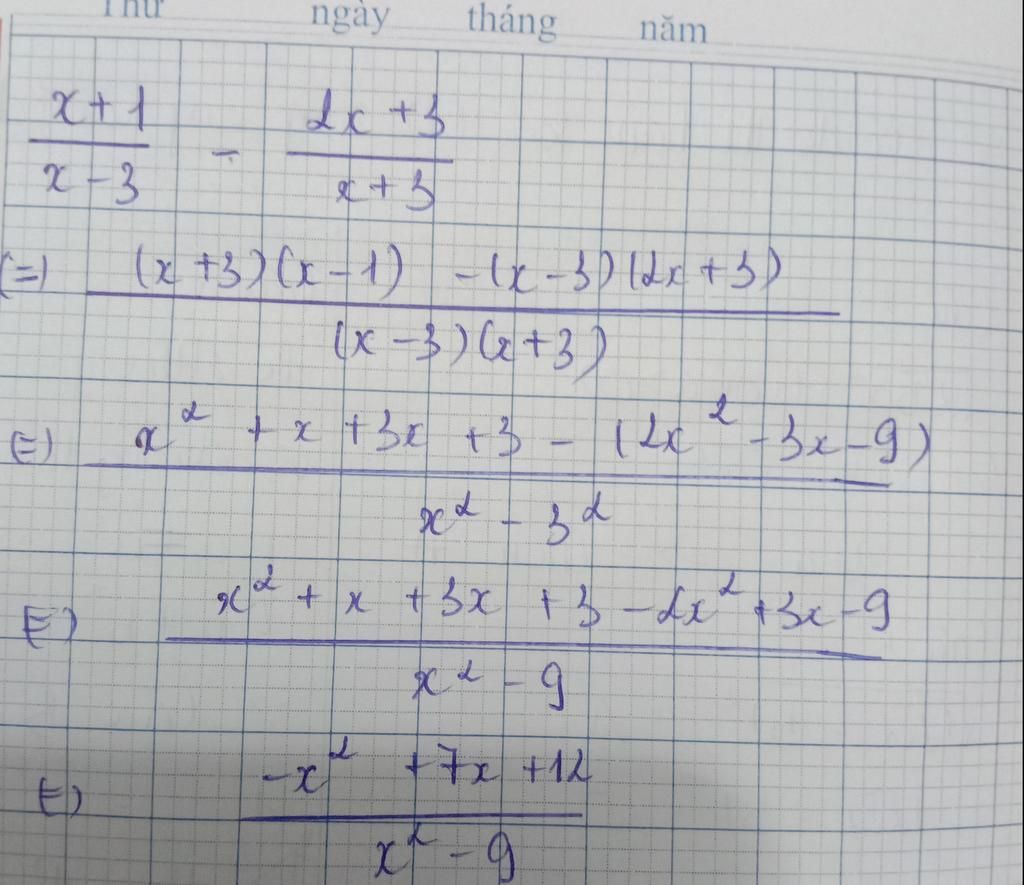 Thứ ngày tháng năm
x + 1 / x - 3 - 2x + 3 / x + 3
(=) (x + 3)(x - 1) - (x - 3)(2x + 3) / (x - 3)(x + 3)
(=) x² + x + 3x + 3 - (2x² - 3x - 9) / x² - 3²
(=) x² + x + 3x + 3 - 2x² + 3x - 9 / x² - 9
(=) -x² + 7x + 12 / x² - 9